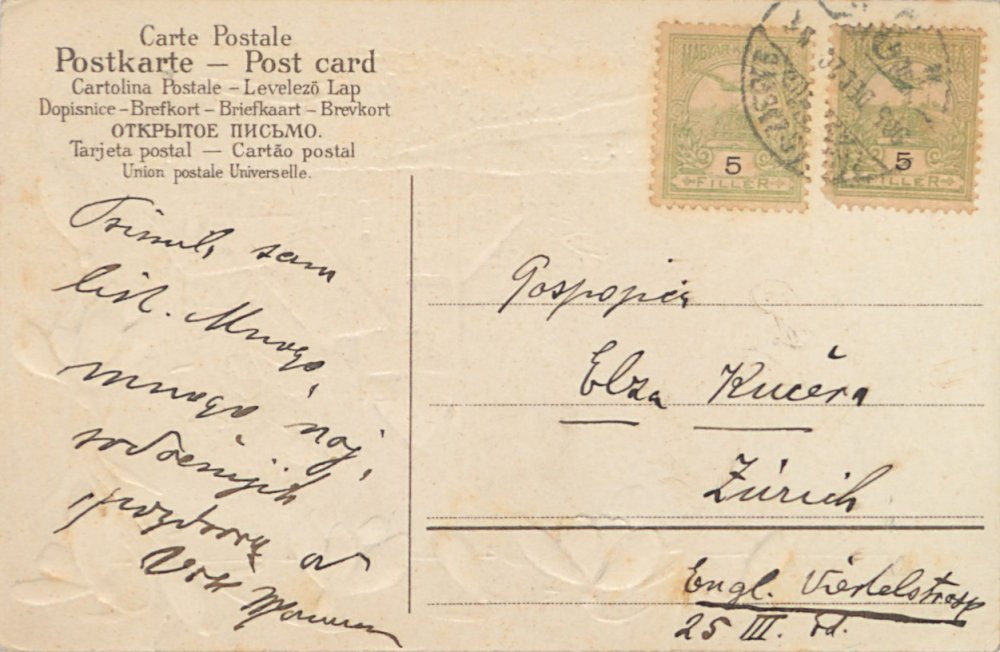 Carte Postale
Postkarte — Post card
Cartolina Postale – Levelező Lap
Dopisnice – Brefkort – Briefkaart – Brevkort
ОТКРЫТОЕ ПИСЬМО.
Tarjeta postal — Cartão postal
Union postale Universelle.
MAGYAR KIR. POSTA
5
FILLÉR
MAGYAR KIR. POSTA
5
FILLÉR
sam
list. Mnogo,
mnogo naj,
srdačnijih
pozdrava od
Elza Kučera
Zürich
Engl. Viertelstrasse
25 III.